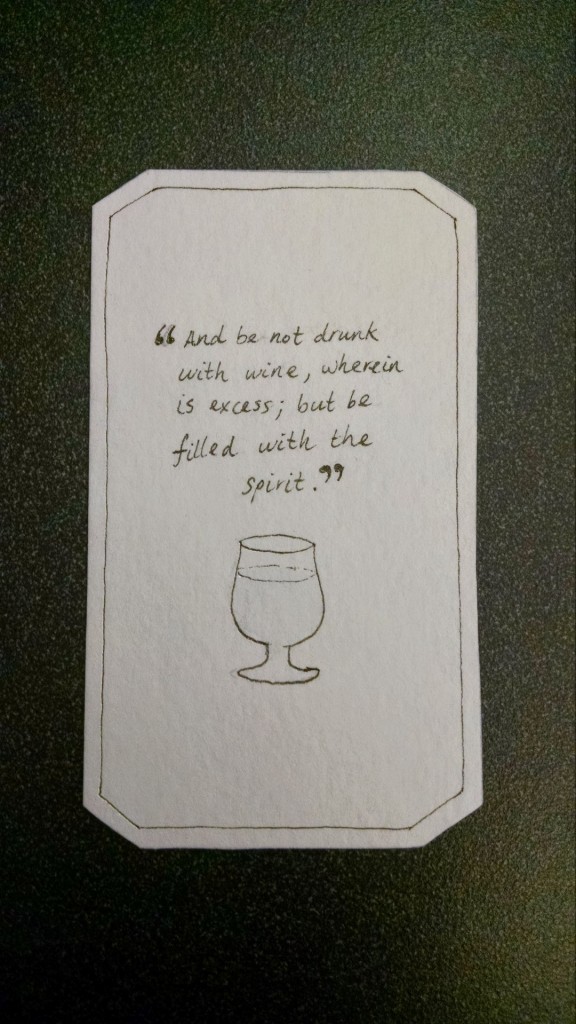 “And be not drunk
with wine, wherein
is excess; but be
filled with the
spirit.”